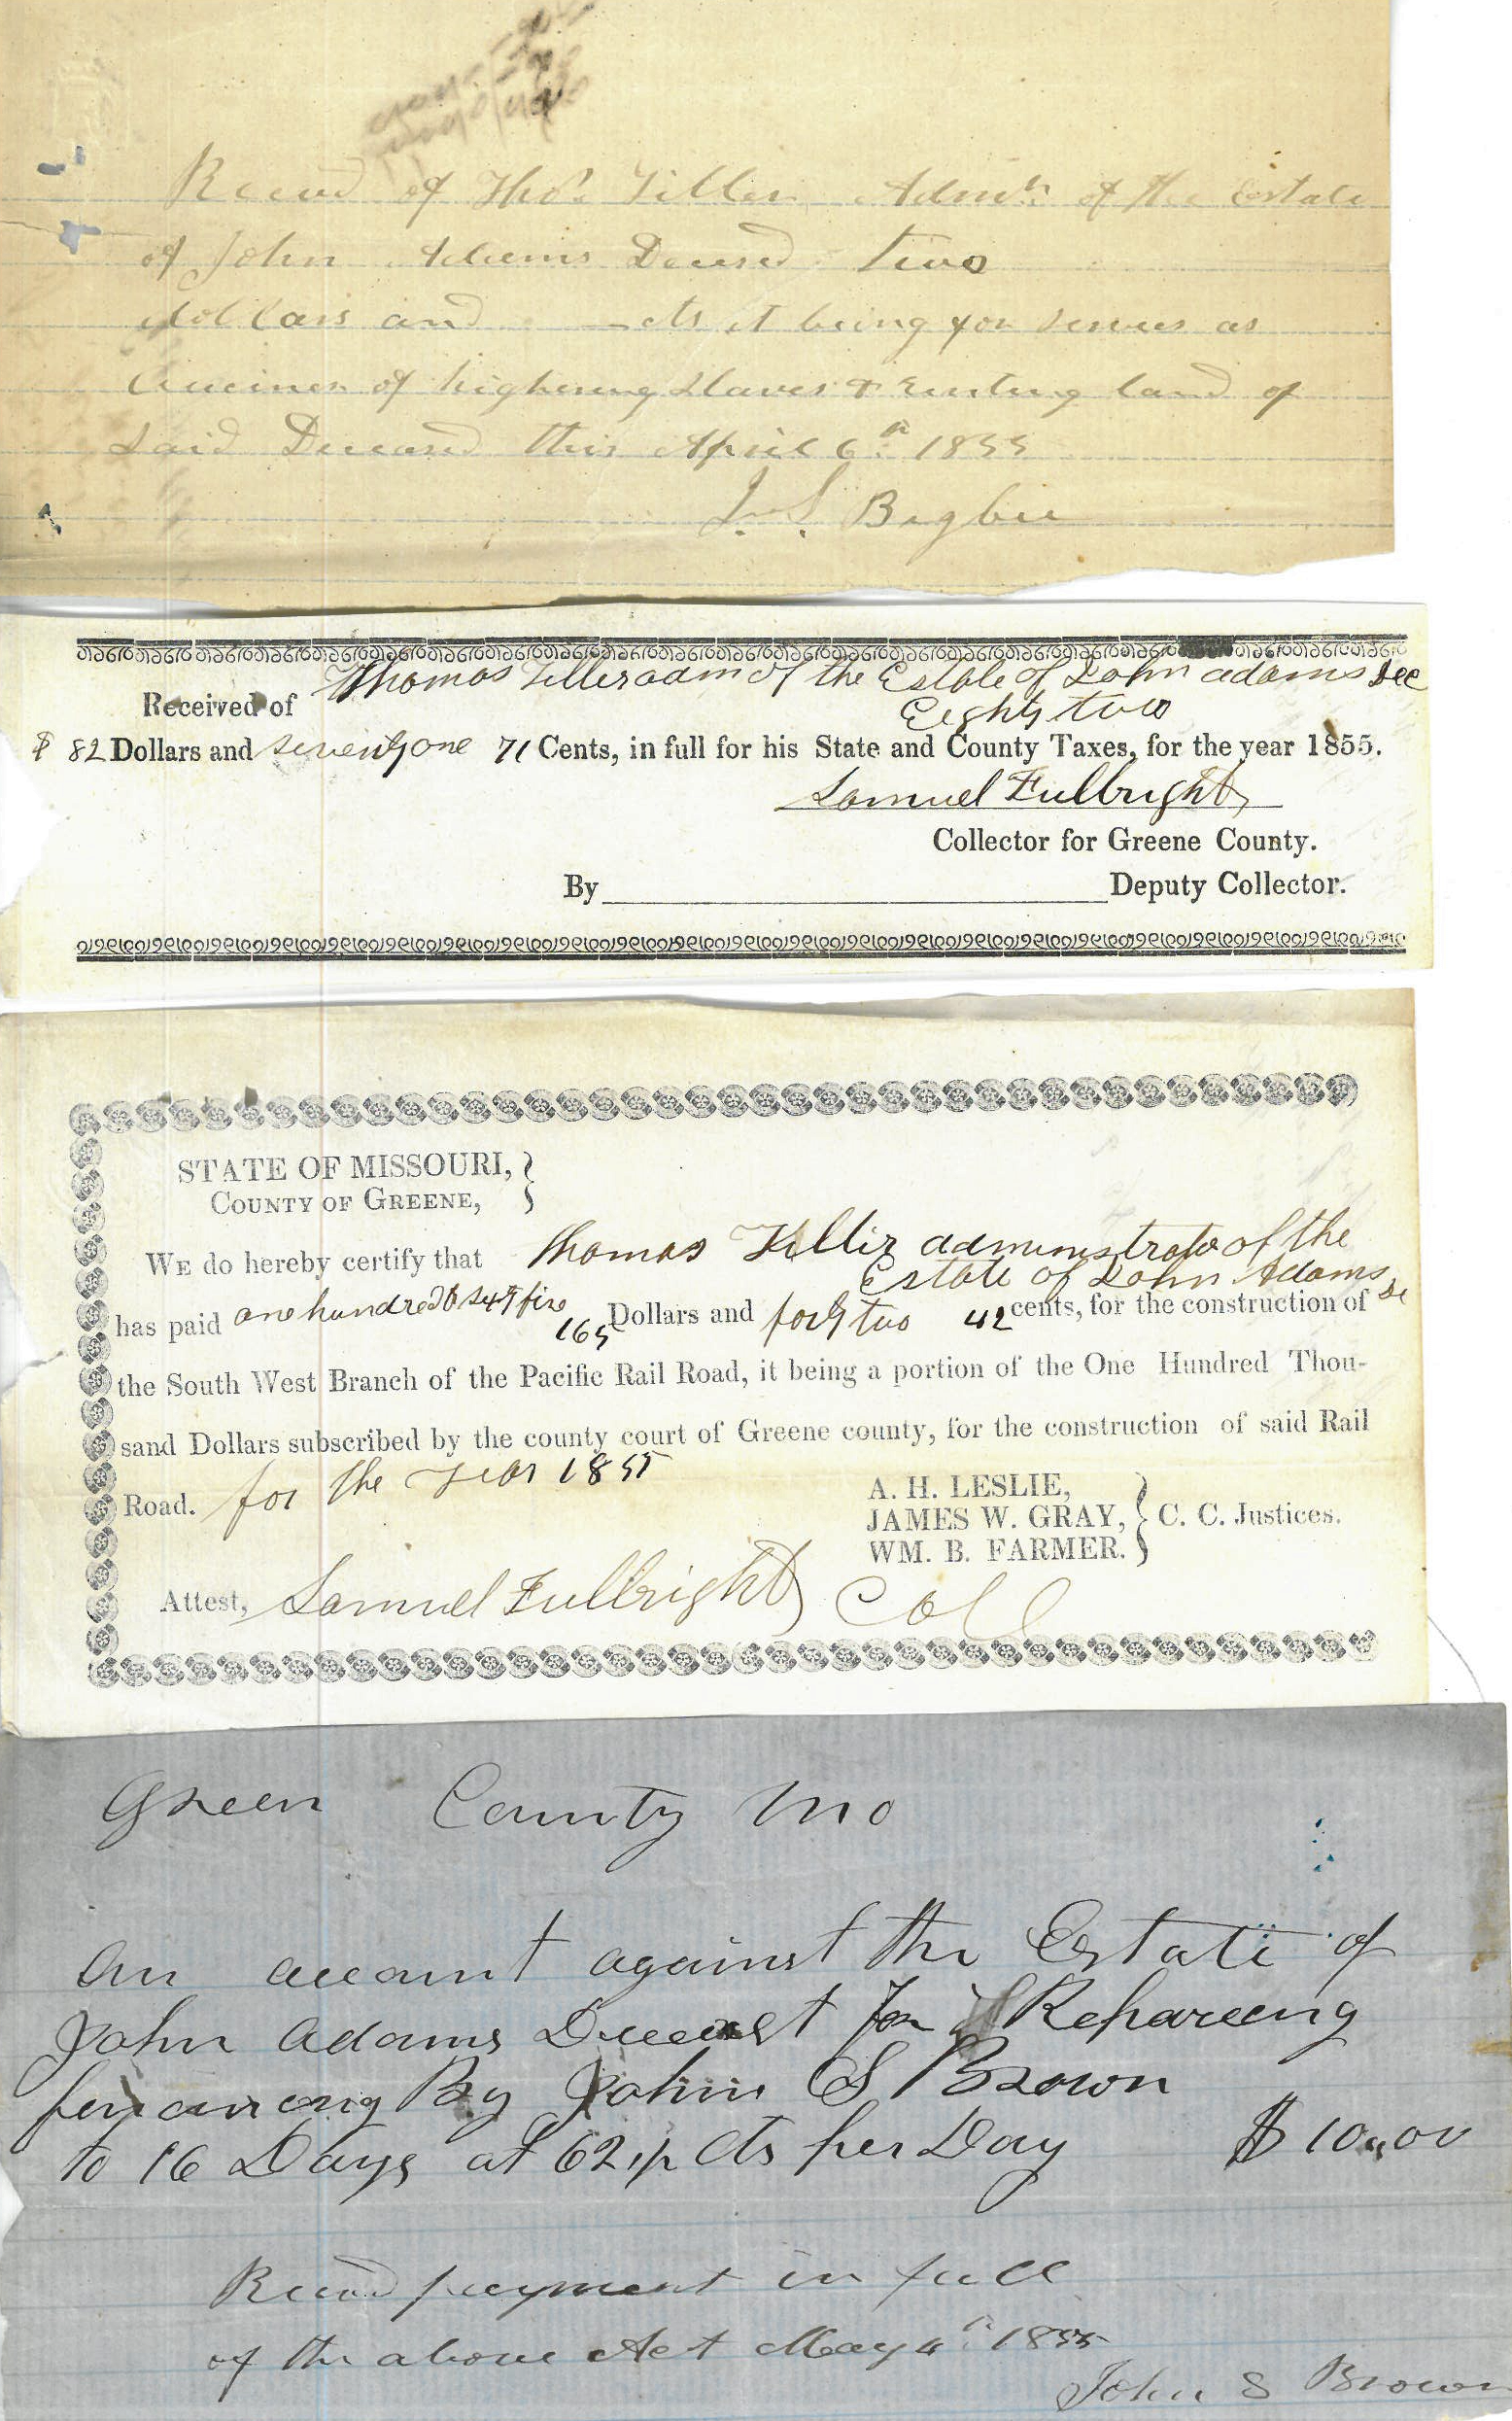 Recvd of Thos Tiller Admr of the Estate
of John Adams Decesd two
dollars and — cts it being for servces as
Criciner of highering Slaves & renting land of
Said Deceased this April 6th 1855
J. S. Bigbee
Received of Thomas Tiller adm of the Estate of John adams Dec
Eighty two
$ 82 Dollars and seventy one 71 Cents, in full for his State and County Taxes, for the year 1855.
Samuel Fulbright
Collector for Greene County.
By Deputy Collector.
STATE OF MISSOURI,
COUNTY OF GREENE,
WE do hereby certify that Thomas Tiller administrator of the
Estate of John Adams De
has paid one hundred & sixty five 165 Dollars and forty two 42 cents, for the construction of
the South West Branch of the Pacific Rail Road, it being a portion of the One Hundred Thou-
sand Dollars subscribed by the county court of Greene county, for the construction of said Rail
Road. for the Year 1855
A. H. LESLIE,
JAMES W. GRAY, C. C. Justices.
WM. B. FARMER.
Attest, Samuel Fulbright Coll
Green County Mo
An account against the Estate of
John Adams Deceast for Repareing
fencing By John S Brown
to 16 Days at 62 1/2 cts per Day $10,,00
Recvd payment in full
of the above Act May 4th 1855
John S Brown